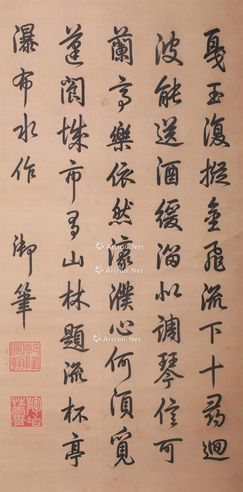 戛玉復摐金飛流下十尋迴
波能送酒緩溜似調琴信可
蘭亭樂依然濠濮心何須覓
蓬閬城市有山林題流杯亭
瀑布水作 御筆
Artron.Net